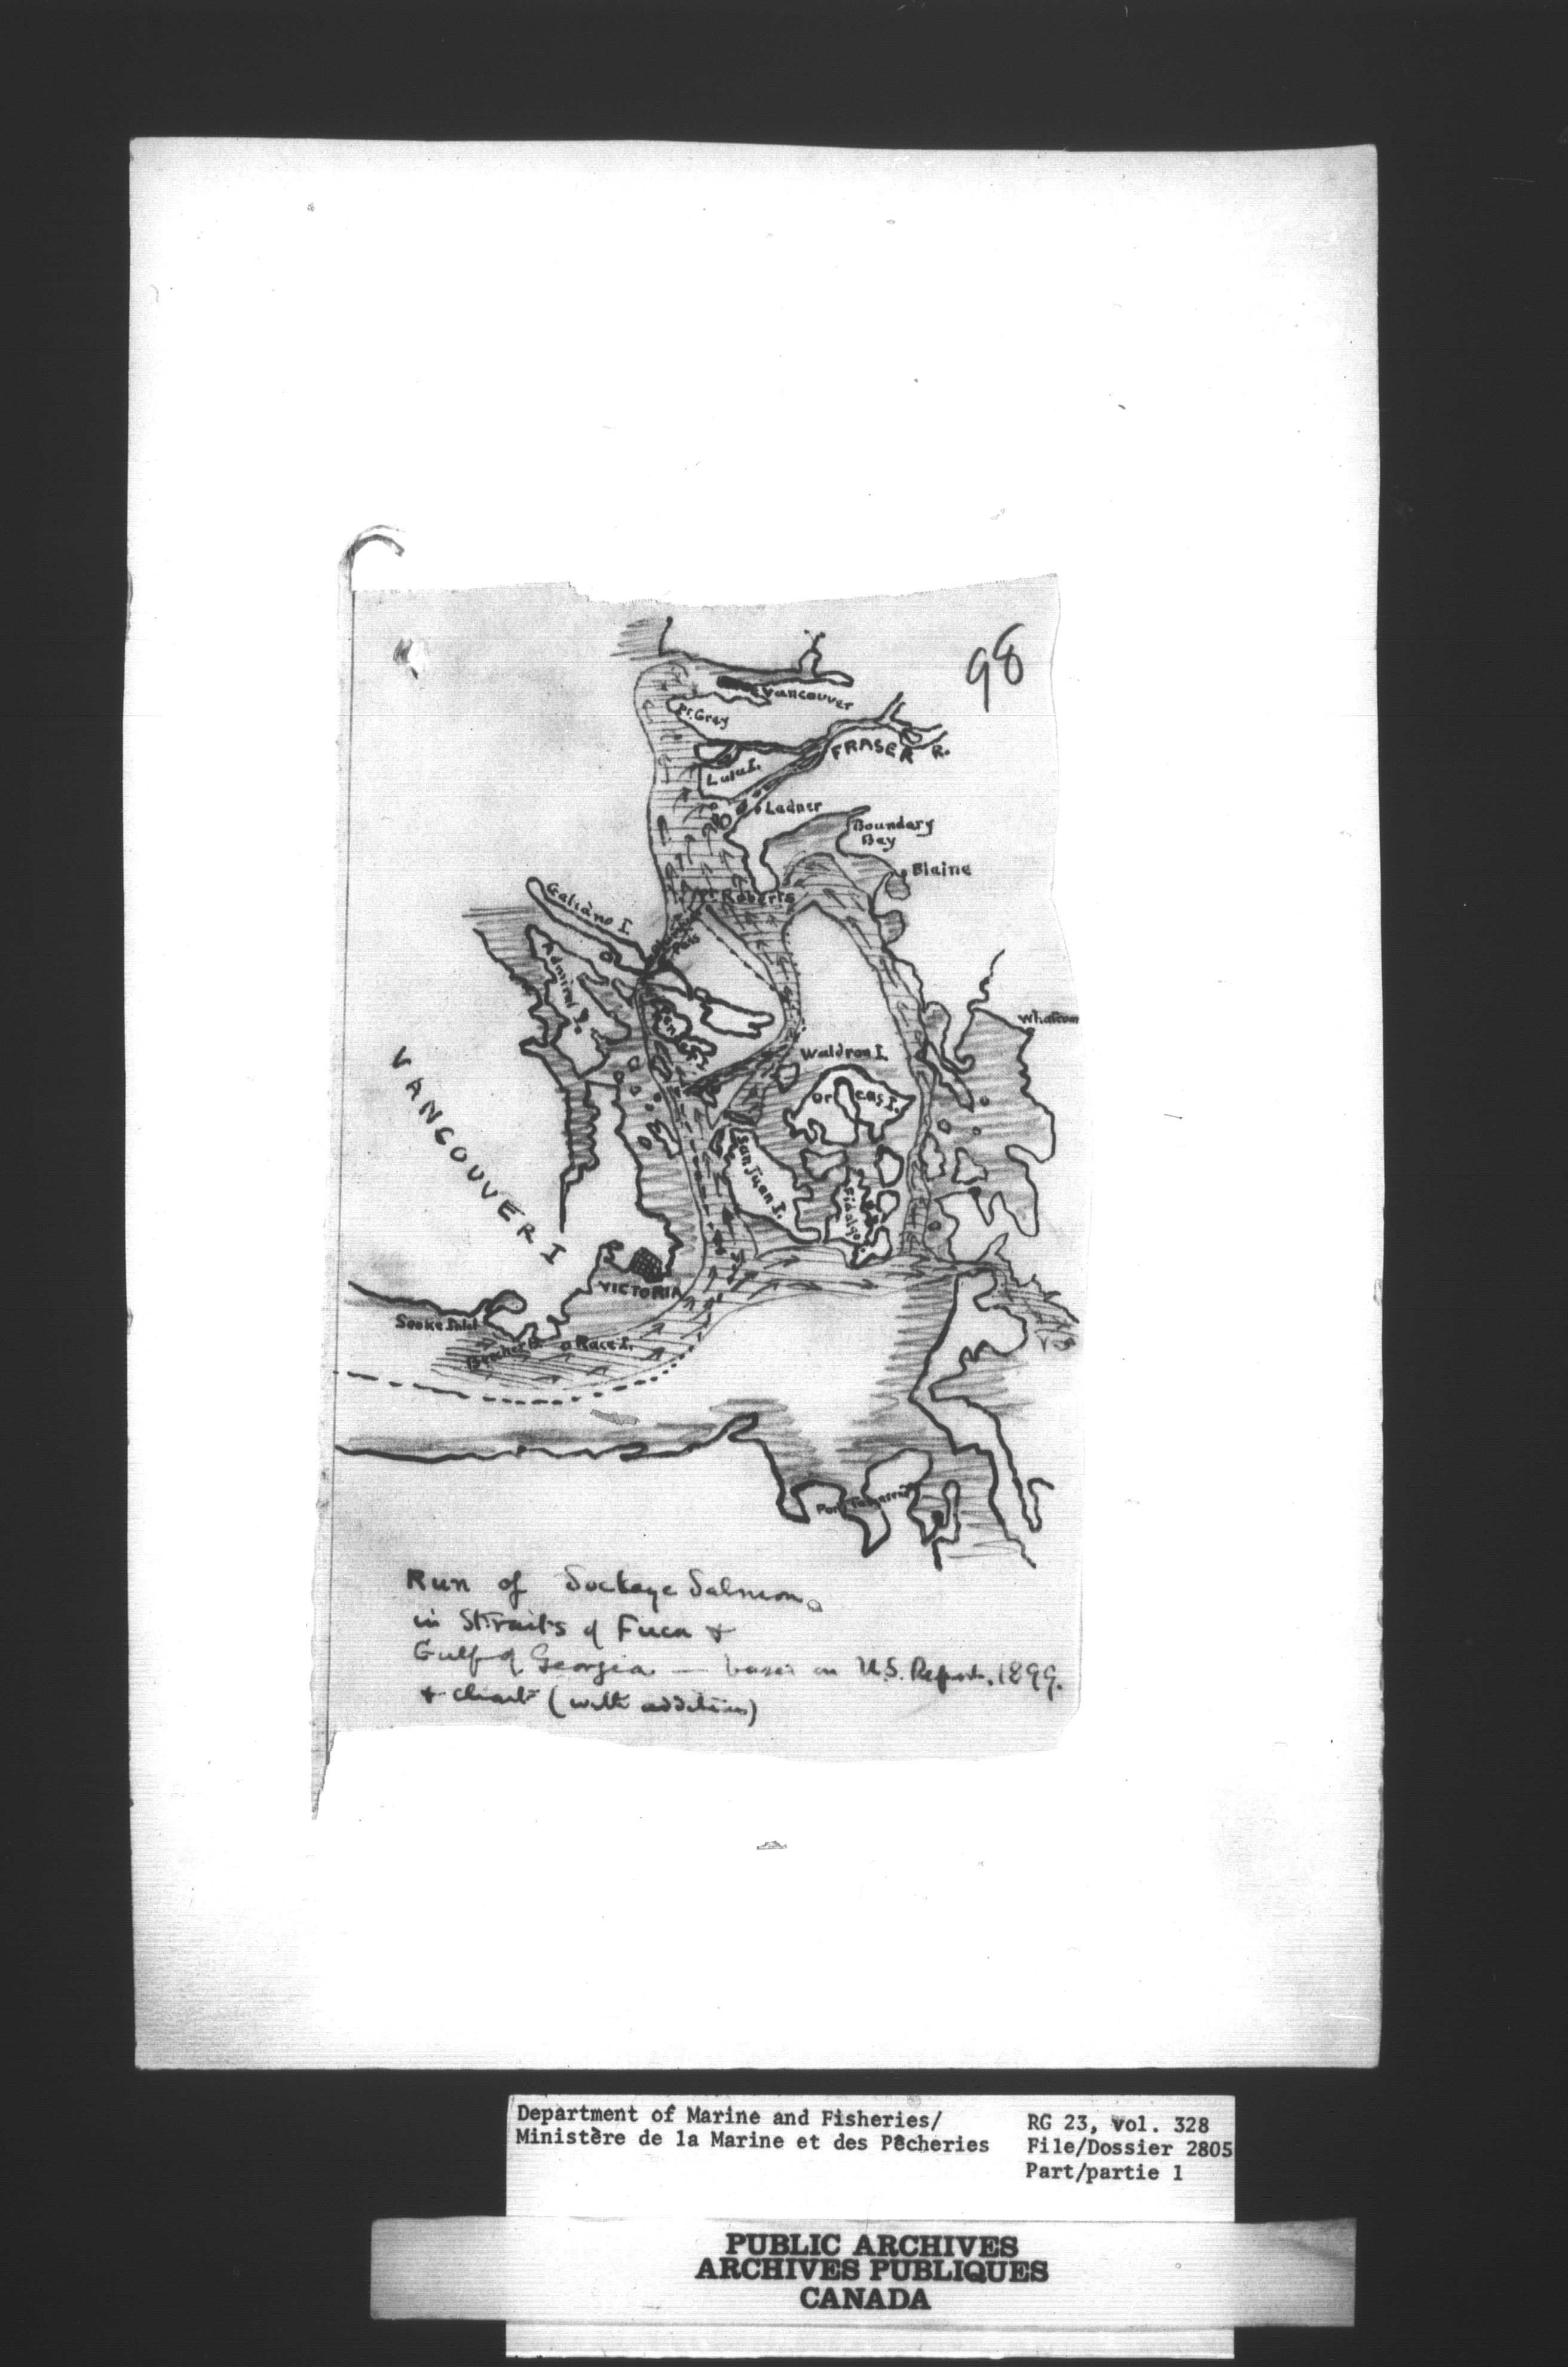 98
Vancouver
Pt. Grey
FRASER R.
Lulu I.
Ladner
Boundary
Bay
Blaine
Pt. Roberts
Galiano I.
Pass
Admiral I.
Whatcom
Waldron I.
Orcas I.
San Juan I.
Fidalgo
VANCOUVER I
VICTORIA
Sooke Inlet
Beecher B.
Race I.
Port Townsend
Run of Sockeye Salmon
in Straits of Fuca &
Gulf of Georgia — based on U.S. Report, 1899.
& chart (with additions)
Department of Marine and Fisheries/
Ministère de la Marine et des Pêcheries
RG 23, vol. 328
File/Dossier 2805
Part/partie 1
PUBLIC ARCHIVES
ARCHIVES PUBLIQUES
CANADA